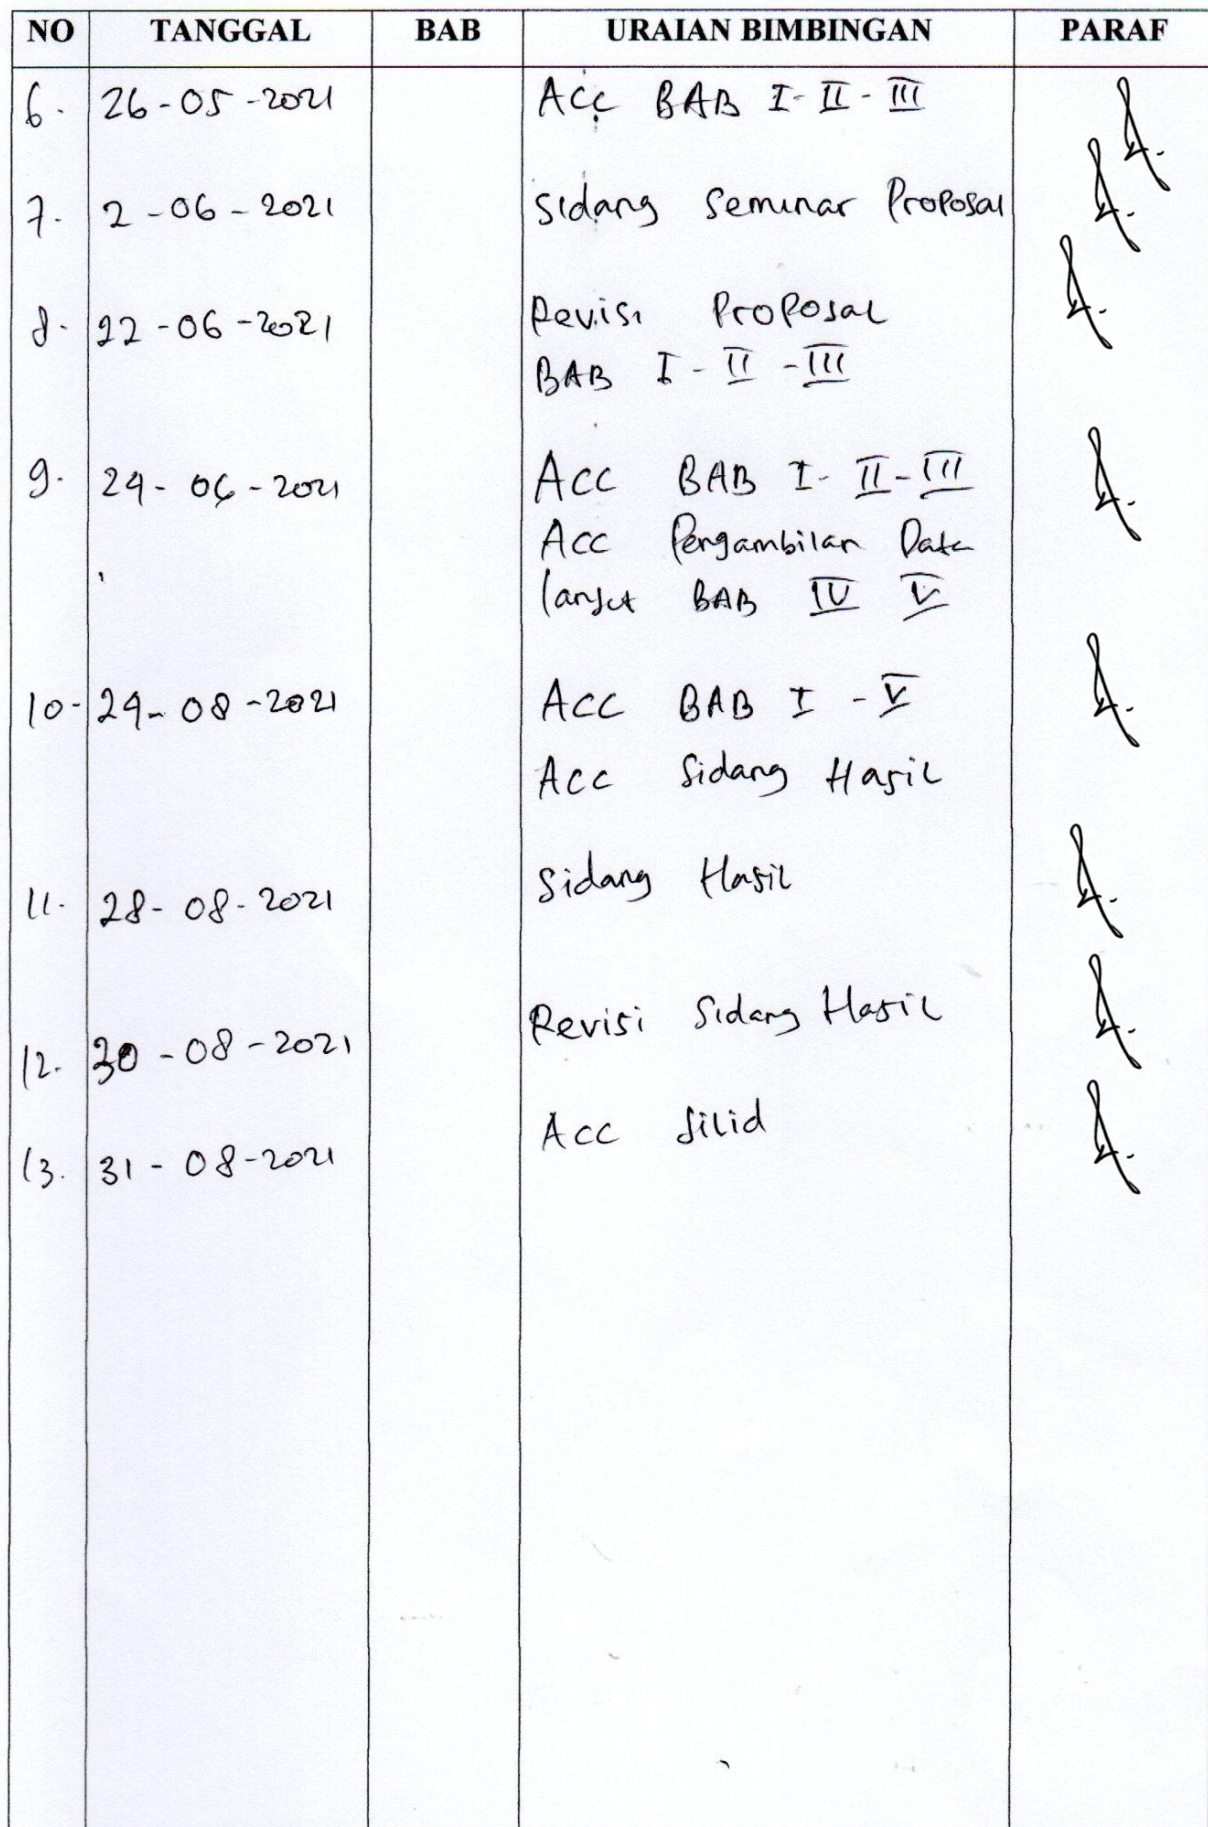 NO TANGGAL BAB URAIAN BIMBINGAN PARAF
6. 26-05-2021 Acc BAB I-II-III
7. 2-06-2021 Sidang Seminar Proposal
8. 22-06-2021 Revisi Proposal
BAB I-II-III
9. 24-06-2021 Acc BAB I-II-III
Acc Pengambilan Data
lanjut BAB IV V
10- 24-08-2021 Acc BAB I-V
Acc Sidang Hasil
11. 28-08-2021 Sidang Hasil
12. 30-08-2021 Revisi Sidang Hasil
13. 31-08-2021 Acc Jilid